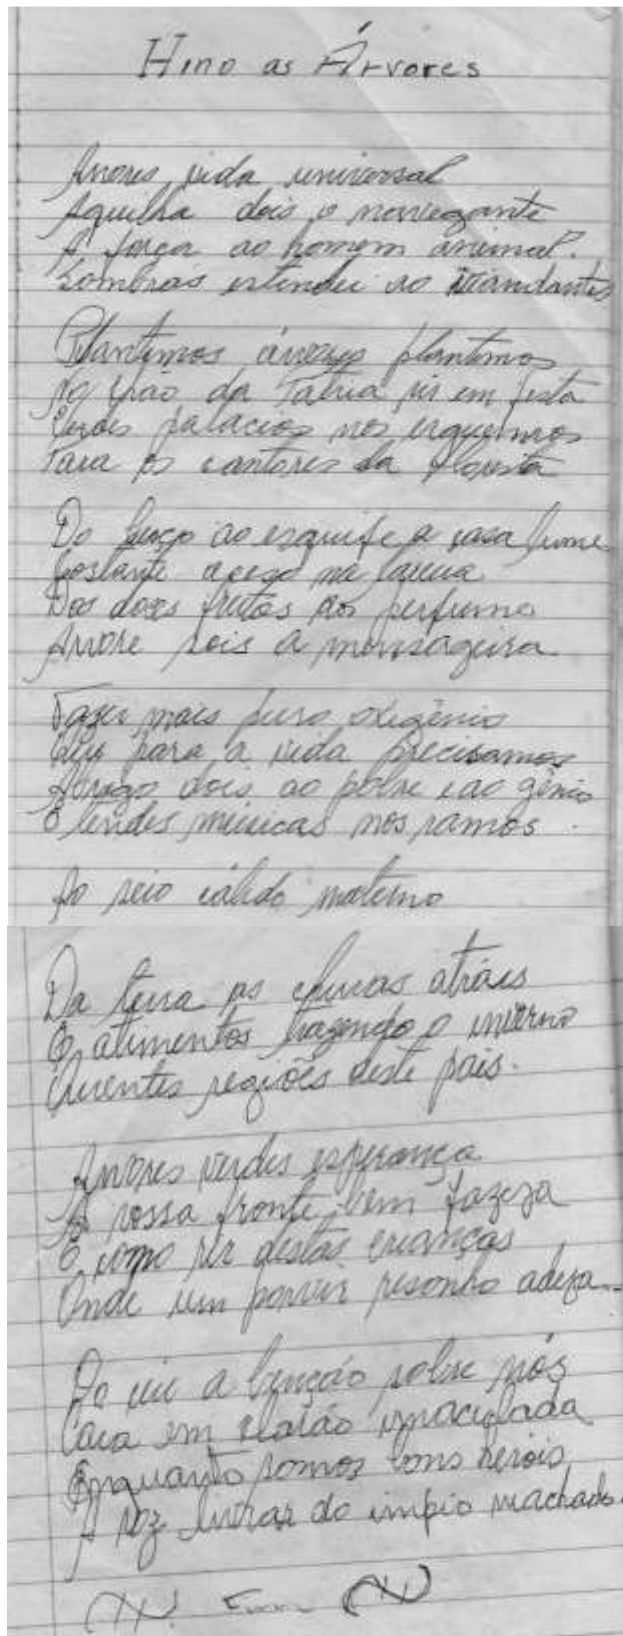 Hino as Árvores
Arvores vida universal
Aquilha dois o navegante
A força ao homem animal.
Sombras estendei ao viandantes
Plantemos árvores plantemos
No chão da Patria ri em festa
Verdes palacios nos erguemos
Para os cantores da floresta
Do berço ao esquife a casa lume
Costante aceso na lareira
Dos doces frutos aos perfume
Arvore sois a mensageira
Fazei mais puro oxigênio
Que para a vida precisamos
Abrigo dois ao pobre e ao gênio
E tendes músicas nos ramos.
Ao seio cálido materno
Da terra as chuvas atrais
E alimentos trazendo o inverno
Quentes regiões deste pais.
Arvores verdes esperança
A vossa fronte bem fazeja
E como rir destas crianças
Onde um porvir risonho adeja
Do céu a benção sobre nós
Caia em clarão imaculada
Enquanto somos bons herois
A voz livrar do impio machado.
Fim